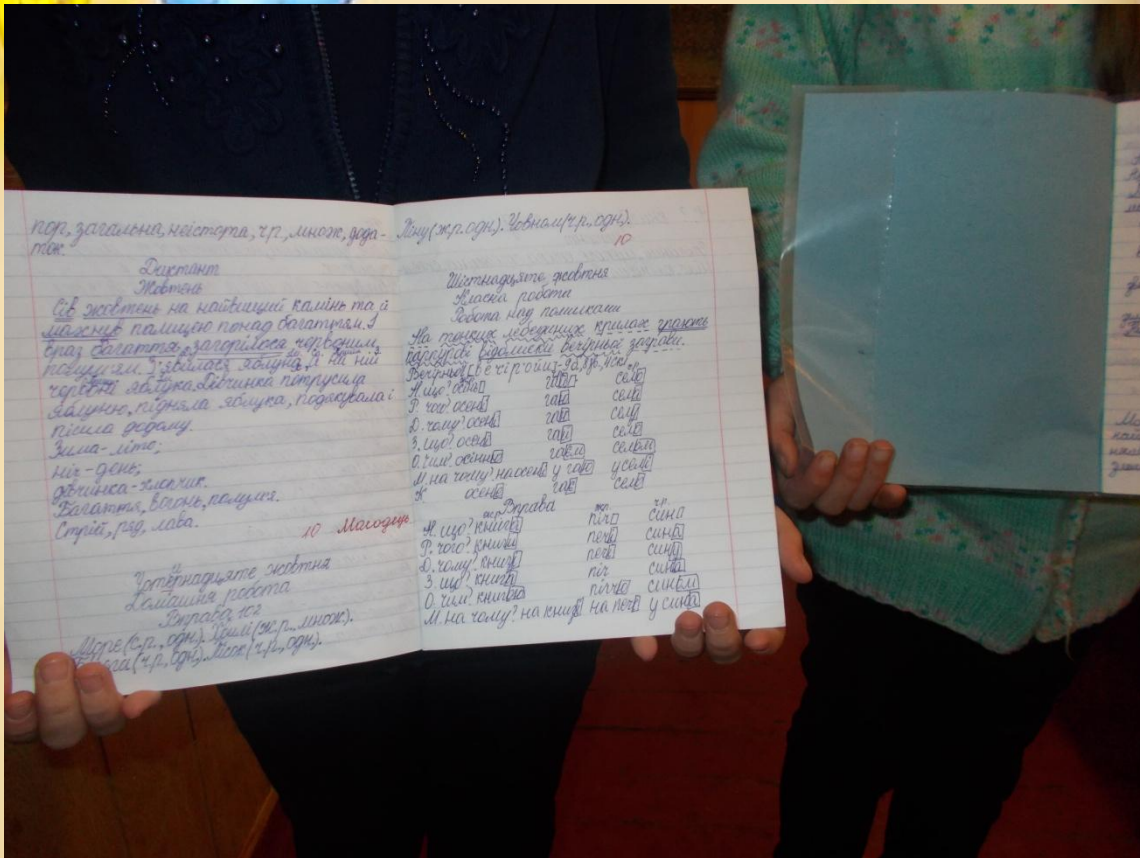 пор, загальна, неістота, ч.р., множ., дода-
ток.
Диктант
Жовтень
Сів жовтень на найвищий камінь та й
махнув палицею понад багаттям. І
враз багаття загорілося червоним
полум'ям. З'явилася яблуня, а на ній
червоні яблука. Дівчинка потрусила
яблуню, підняла яблука, подякувала і
пішла додому.
Зима-літо;
ніч-день;
дівчинка-хлопчик.
Багаття, вогонь, полум'я.
Стрій, ряд, лава.
10 Молодець
Чотирнадцяте жовтня
Домашня робота
Вправа 102
Море (с.р., одн). (ж.р., множ).
(ч.р., одн). Пісок (ч.р., одн).
Піну (ж.р. одн). Човном (ч.р., одн).
10
Шістнадцяте жовтня
Класна робота
Робота над помилками
На тонких лебединих крилах грають
пурпурові відблиски вечірньої заграви.
Вечірньої
Н. що? осінь гай село
Р. чого? осені гаю села
Д. чому? осені гаю селу
З. що? осінь гай село
О. чим? осінню гаєм селом
М. на чому? на осені у гаю у селі
К осене гаю село
Вправа
жр жр чр
Н. що? книга піч син
Р. чого? книги печі сина
Д. чому? книзі печі сину
З. що? книгу піч сина
О. чим? книгою піччю сином
М. на чому? на книзі на печі у сина